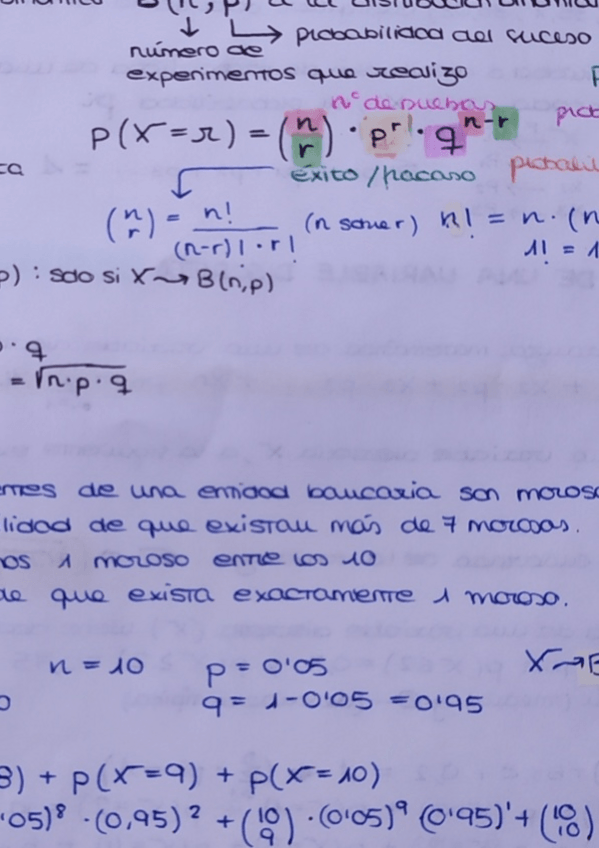 B(n, p) a la distribución
número de → probabilidad del suceso
experimentos que realizo
nº de pruebas
p(X=r) = (n r) · p^r · q^(n-r)
éxito/fracaso
(n r) = n! / (n-r)! · r! (n sobre r) n! = n · (n
1! = 1
p) : solo si X → B(n,p)
· q
= √n·p·q
entes de una entidad bancaria son moroso
ilidad de que existan más de 7 morosos.
nos 1 moroso entre los 10
de que exista exactamente 1 moroso.
n = 10 p = 0'05 X → B
q = 1 - 0'05 = 0'95
8) + p(X=9) + p(X=10)
'05)⁸ · (0,95)² + (10 9) · (0'05)⁹ (0'95)¹ + (10 10)